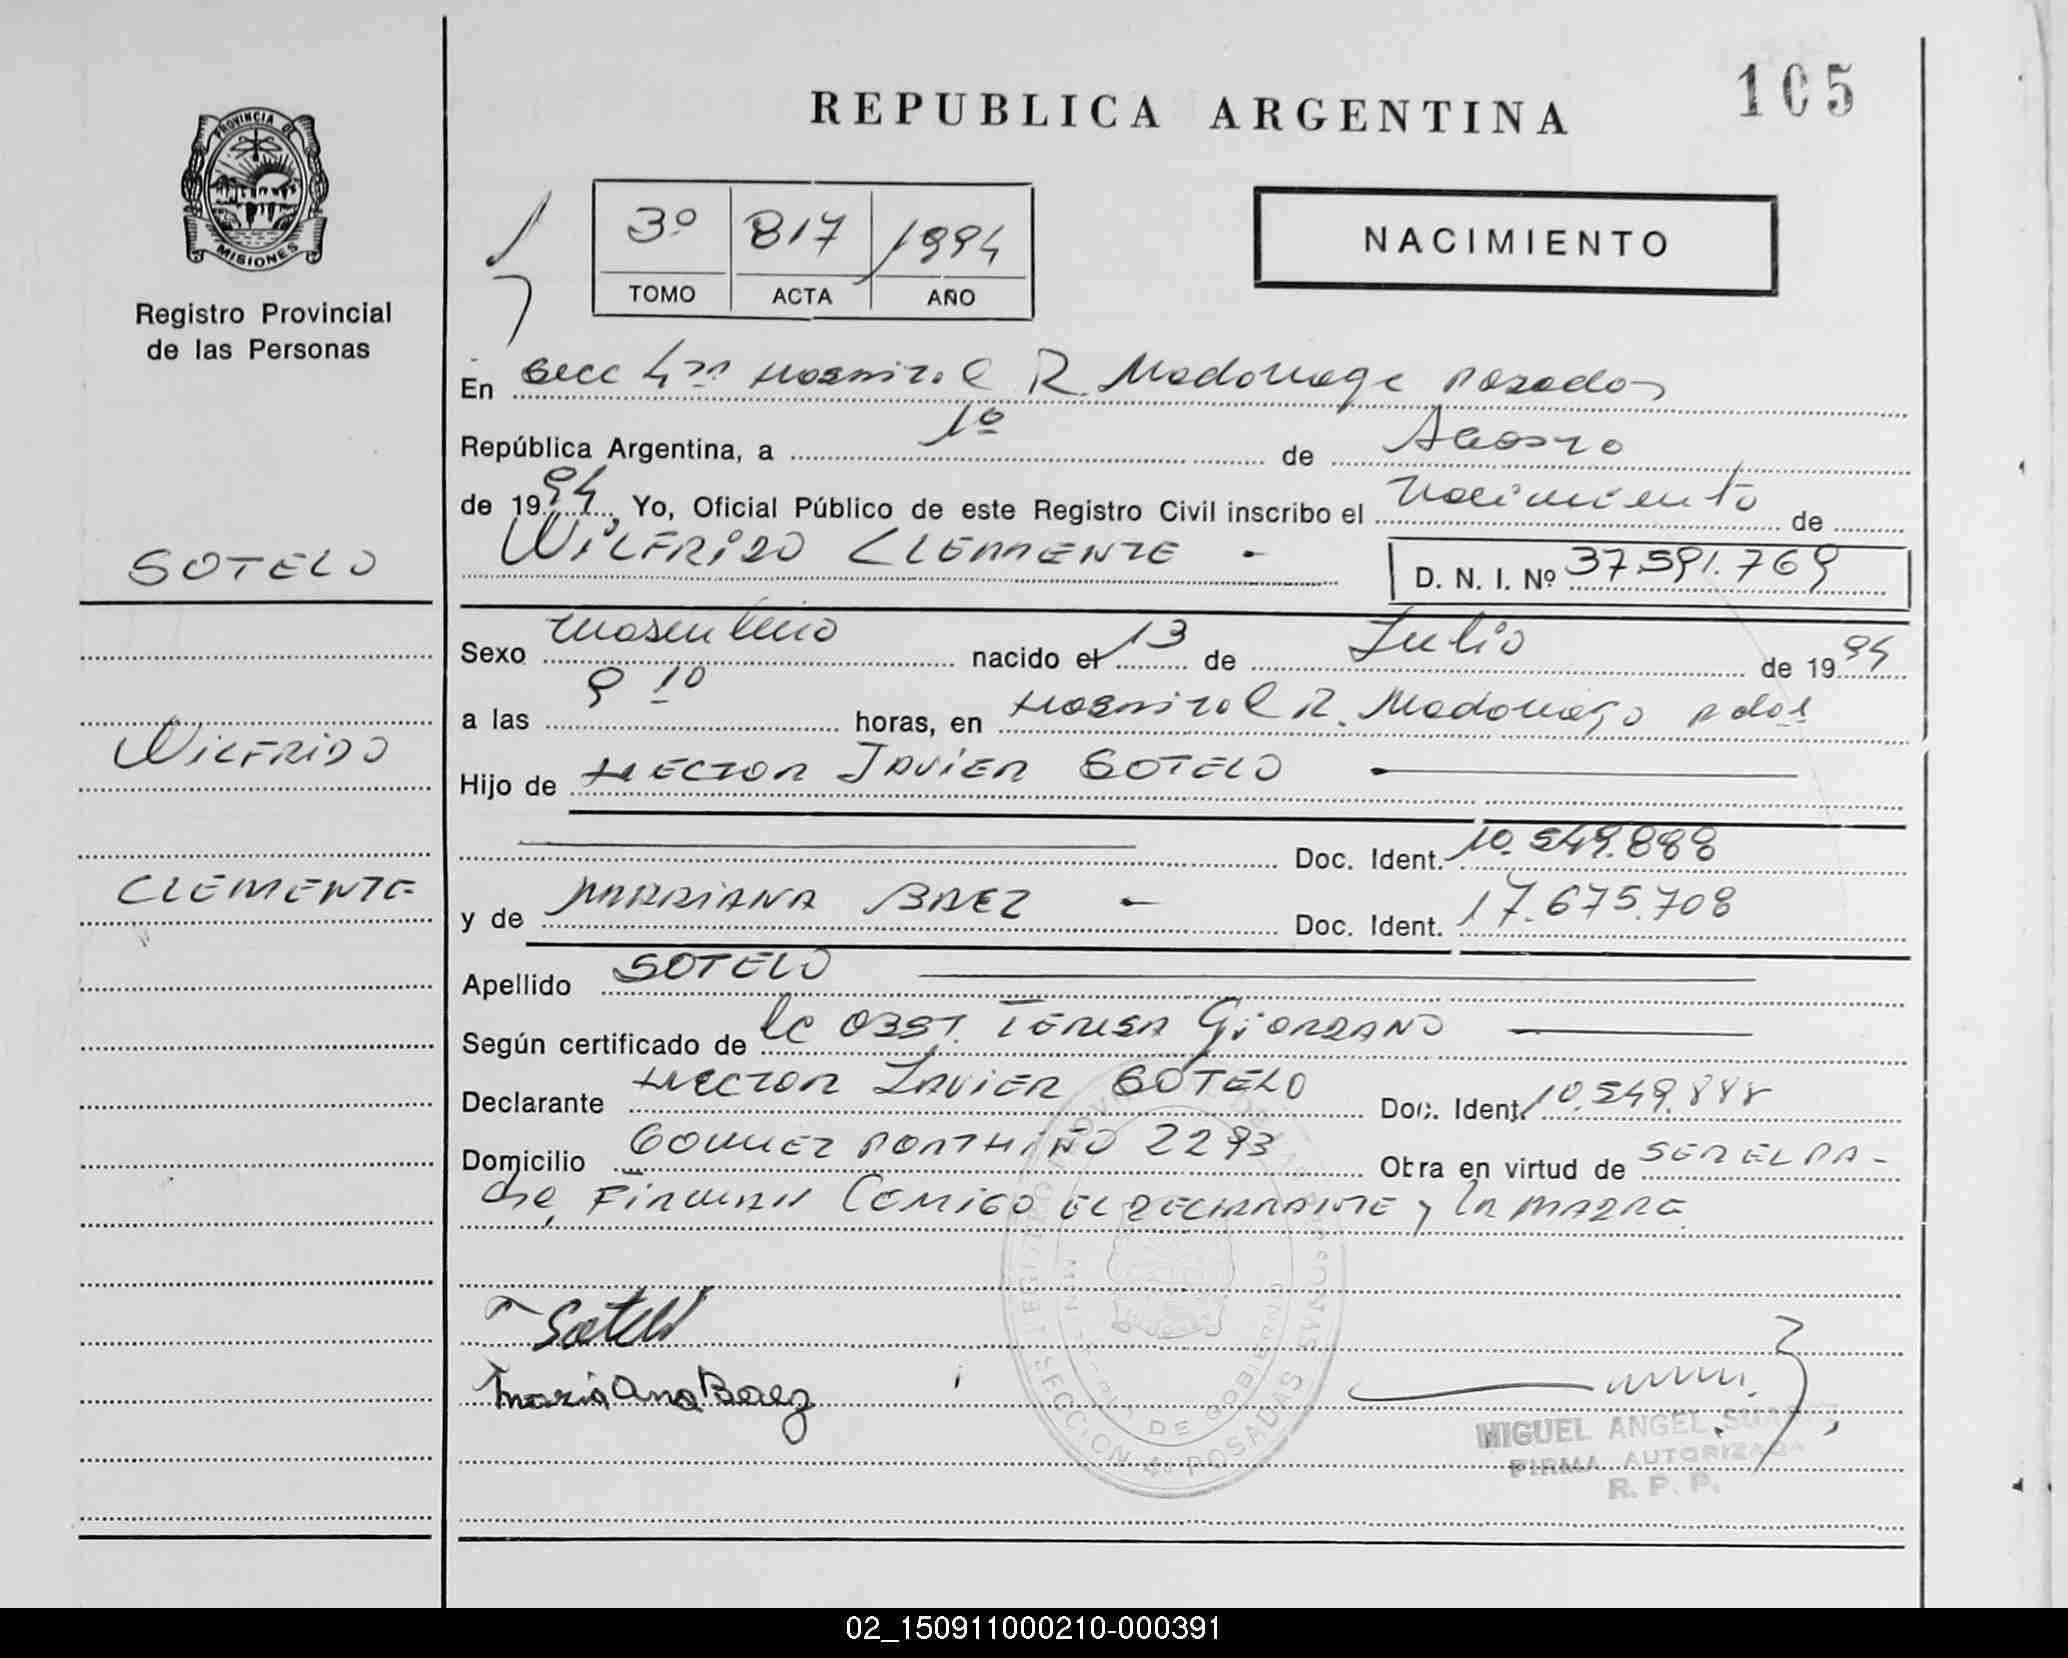 105
REPUBLICA ARGENTINA
PROVINCIA DE
MISIONES
Registro Provincial
de las Personas
3º 817 1994
TOMO ACTA AÑO
NACIMIENTO
En Secc 4ta Hospital R. Madariaga Posadas
República Argentina, a 1º de Agosto
de 1994, Yo, Oficial Público de este Registro Civil inscribo el nacimiento de
WILFRIDO CLEMENTE - D. N. I. Nº 37.591.769
SOTELO
WILFRIDO
CLEMENTE
Sexo masculino nacido el 13 de Julio de 1994
a las 9 10 horas, en Hospital R. Madariaga Pdas
Hijo de HECTOR JAVIER SOTELO
Doc. Ident. 10.549.888
y de MARIANA BAEZ - Doc. Ident. 17.675.708
Apellido SOTELO
Según certificado de la OBST. TERESA GIORDANO
Declarante HECTOR JAVIER SOTELO Doc. Ident. 10.549.888
Domicilio GOMEZ PORTIÑO 2293 Obra en virtud de SER EL PA-
dre, FIRMAN COMIGO EL DECLARANTE y la MADRE
Sotelo
Mariana Baez
SECCION 4º POSADAS
MIGUEL ANGEL SUAREZ
FIRMA AUTORIZADA
R. P. P.
02_150911000210-000391